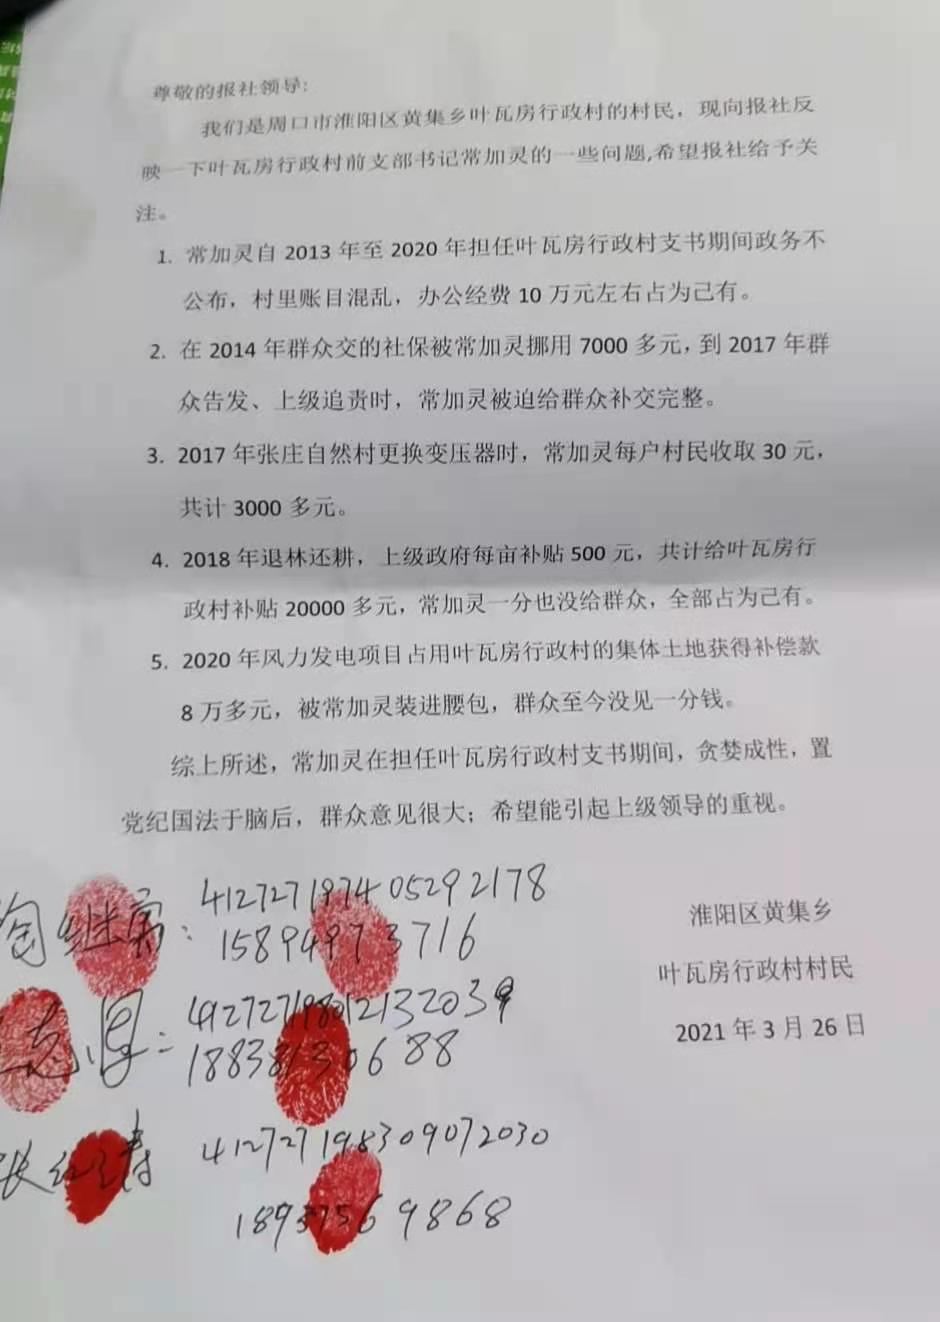 尊敬的报社领导:
我们是周口市淮阳区黄集乡叶瓦房行政村的村民，现向报社反
映一下叶瓦房行政村前支部书记常加灵的一些问题,希望报社给予关
注。
1. 常加灵自 2013 年至 2020 年担任叶瓦房行政村支书期间政务不
公布，村里账目混乱，办公经费 10 万元左右占为己有。
2. 在 2014 年群众交的社保被常加灵挪用 7000 多元，到 2017 年群
众告发、上级追责时，常加灵被迫给群众补交完整。
3. 2017 年张庄自然村更换变压器时，常加灵每户村民收取 30 元，
共计 3000 多元。
4. 2018 年退林还耕，上级政府每亩补贴 500 元，共计给叶瓦房行
政村补贴 20000 多元，常加灵一分也没给群众，全部占为己有。
5. 2020 年风力发电项目占用叶瓦房行政村的集体土地获得补偿款
8 万多元，被常加灵装进腰包，群众至今没见一分钱。
综上所述，常加灵在担任叶瓦房行政村支书期间，贪婪成性，置
党纪国法于脑后，群众意见很大；希望能引起上级领导的重视。
412727197405292178
15894973716
412727198012132039
18838130688
412727198309072030
18937569868
淮阳区黄集乡
叶瓦房行政村村民
2021 年 3 月 26 日